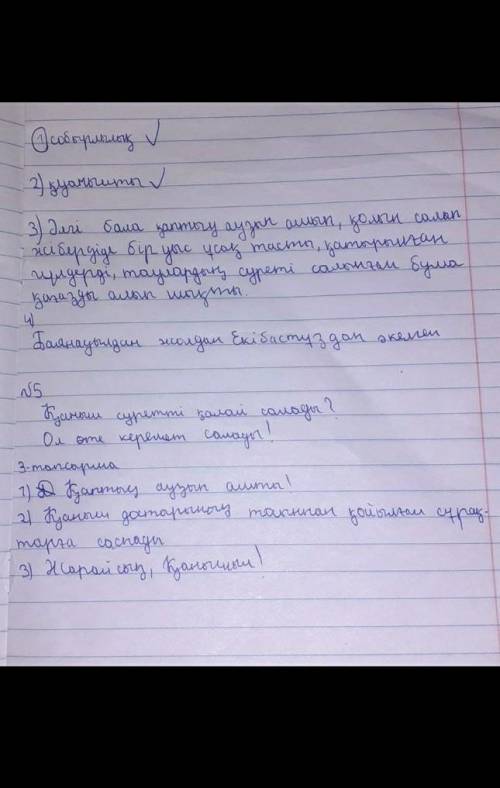 1) сабырлылық ✓
2) қуанышты ✓
3) Әлгі бала қаптың аузын ашып, қолын салып
жіберіпде бір уыс ұсақ тасты, қатырылған
гүлдерді, таулардың суреті салынған бума
қағазды алып шықты.
4)
Баянауылдан жолдан Екібастұздан әкелген
№5
Қаныш суретті қалай салады?
Ол өте керемет салады!
3-тапсырма
1) Қаптың аузын ашты!
2) Қаныш достарының тақыннан қойылған сұрақ-
тарға саспады
3) Жарайсың, Қанышым!